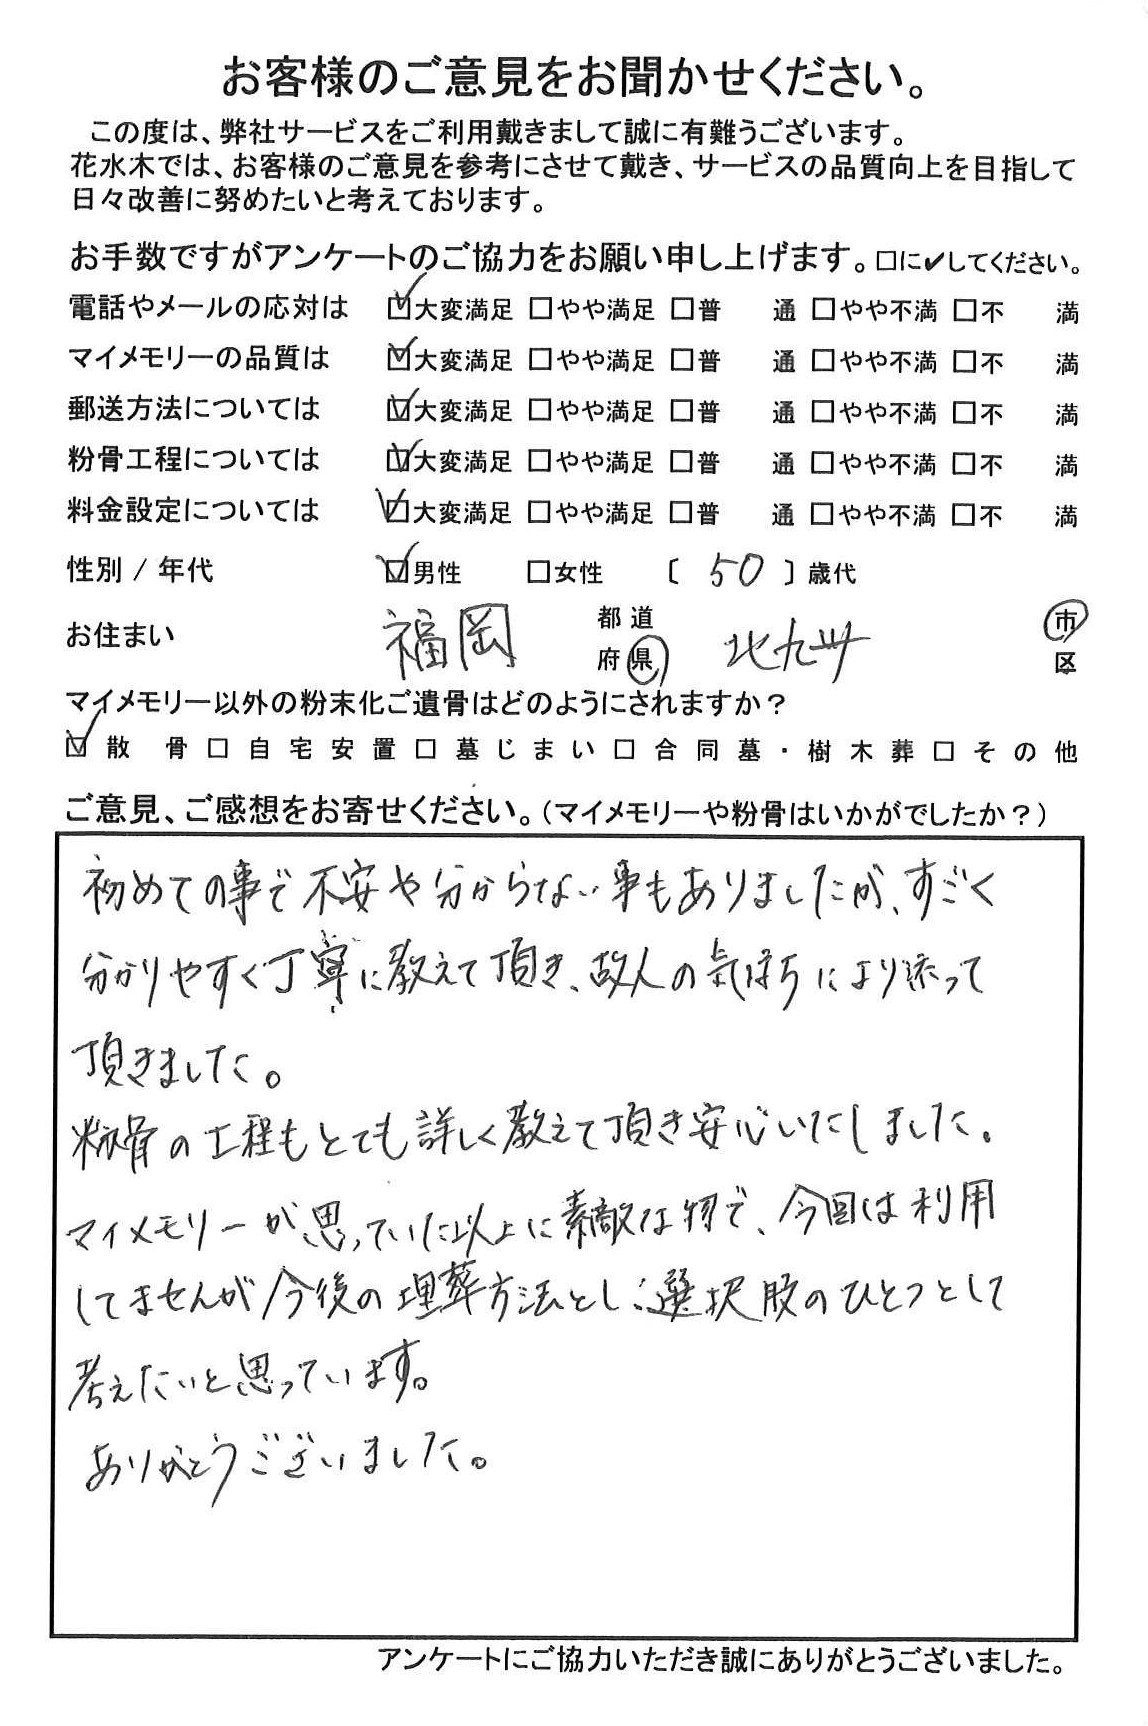 お客様のご意見をお聞かせください。
この度は、弊社サービスをご利用戴きまして誠に有難うございます。
花水木では、お客様のご意見を参考にさせて戴き、サービスの品質向上を目指して
日々改善に努めたいと考えております。
お手数ですがアンケートのご協力をお願い申し上げます。□に✔してください。
電話やメールの応対は ☑大変満足 □やや満足 □普 通 □やや不満 □不 満
マイメモリーの品質は ☑大変満足 □やや満足 □普 通 □やや不満 □不 満
郵送方法については ☑大変満足 □やや満足 □普 通 □やや不満 □不 満
粉骨工程については ☑大変満足 □やや満足 □普 通 □やや不満 □不 満
料金設定については ☑大変満足 □やや満足 □普 通 □やや不満 □不 満
性別 / 年代 ☑男性 □女性 〔 50 〕歳代
お住まい 福岡 都道府県 北九州 市区
マイメモリー以外の粉末化ご遺骨はどのようにされますか？
☑散 骨 □自宅安置 □墓じまい □合同墓・樹木葬 □その他
ご意見、ご感想をお寄せください。（マイメモリーや粉骨はいかがでしたか？）
初めての事で不安や分からない事もありましたが、すごく
分かりやすく丁寧に教えて頂き、故人の気持ちにより添って
頂きました。
粉骨の工程もとても詳しく教えて頂き安心いたしました。
マイメモリーが思っていた以上に素敵な物で、今回は利用
してませんが今後の埋葬方法とし、選択肢のひとつとして
考えたいと思っています。
ありがとうございました。
アンケートにご協力いただき誠にありがとうございました。